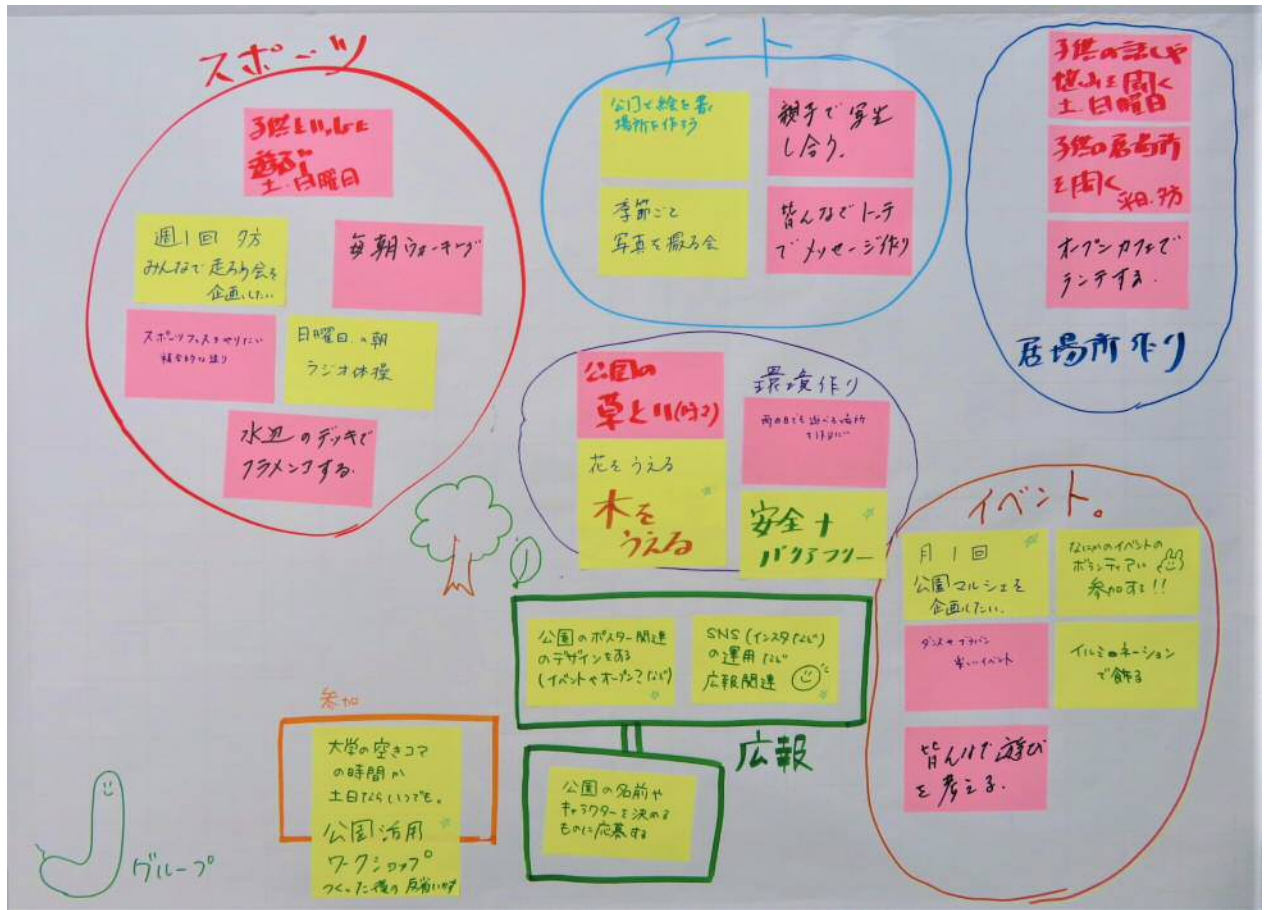 スポーツ
子供といっしょに
遊ぶ
土.日曜日
週1回 夕方
みんなで走ろう会を
企画したい
毎朝ウォーキング
スポーツフェスをやりたい
日曜日の朝
ラジオ体操
水辺のデッキで
フラメンコする.
アート
公園で絵を書く
場所を作ろう
親子で写生
し合う.
季節ごと
写真を撮る会
皆んなで
でメッセージ作り
子供の話しや
悩みを聞く
土.日曜日
子供の居場所
を開く
平日.夕方
オープンカフェで
する.
居場所作り
環境作り
公園の
草とり
雨の日でも遊べる場所
花をうえる
木を
うえる
安全+
バリアフリー
イベント。
月1回
公園マルシェを
企画したい.
なにかのイベントの
ボランティアに
参加する!!
イベント
イルミネーション
で飾る
皆んなで遊び
を考える.
公園のポスター関連
のデザインをする
(イベントやオープン?など)
SNS(インスタなど)
の運用など
広報関連
広報
公園の名前や
キャラクターを決める
ものに応募する
参加
大学の空きコマ
の時間か
土日ならいつでも。
公園活用
ワークショップ
つくった後の反省いかす
グループ